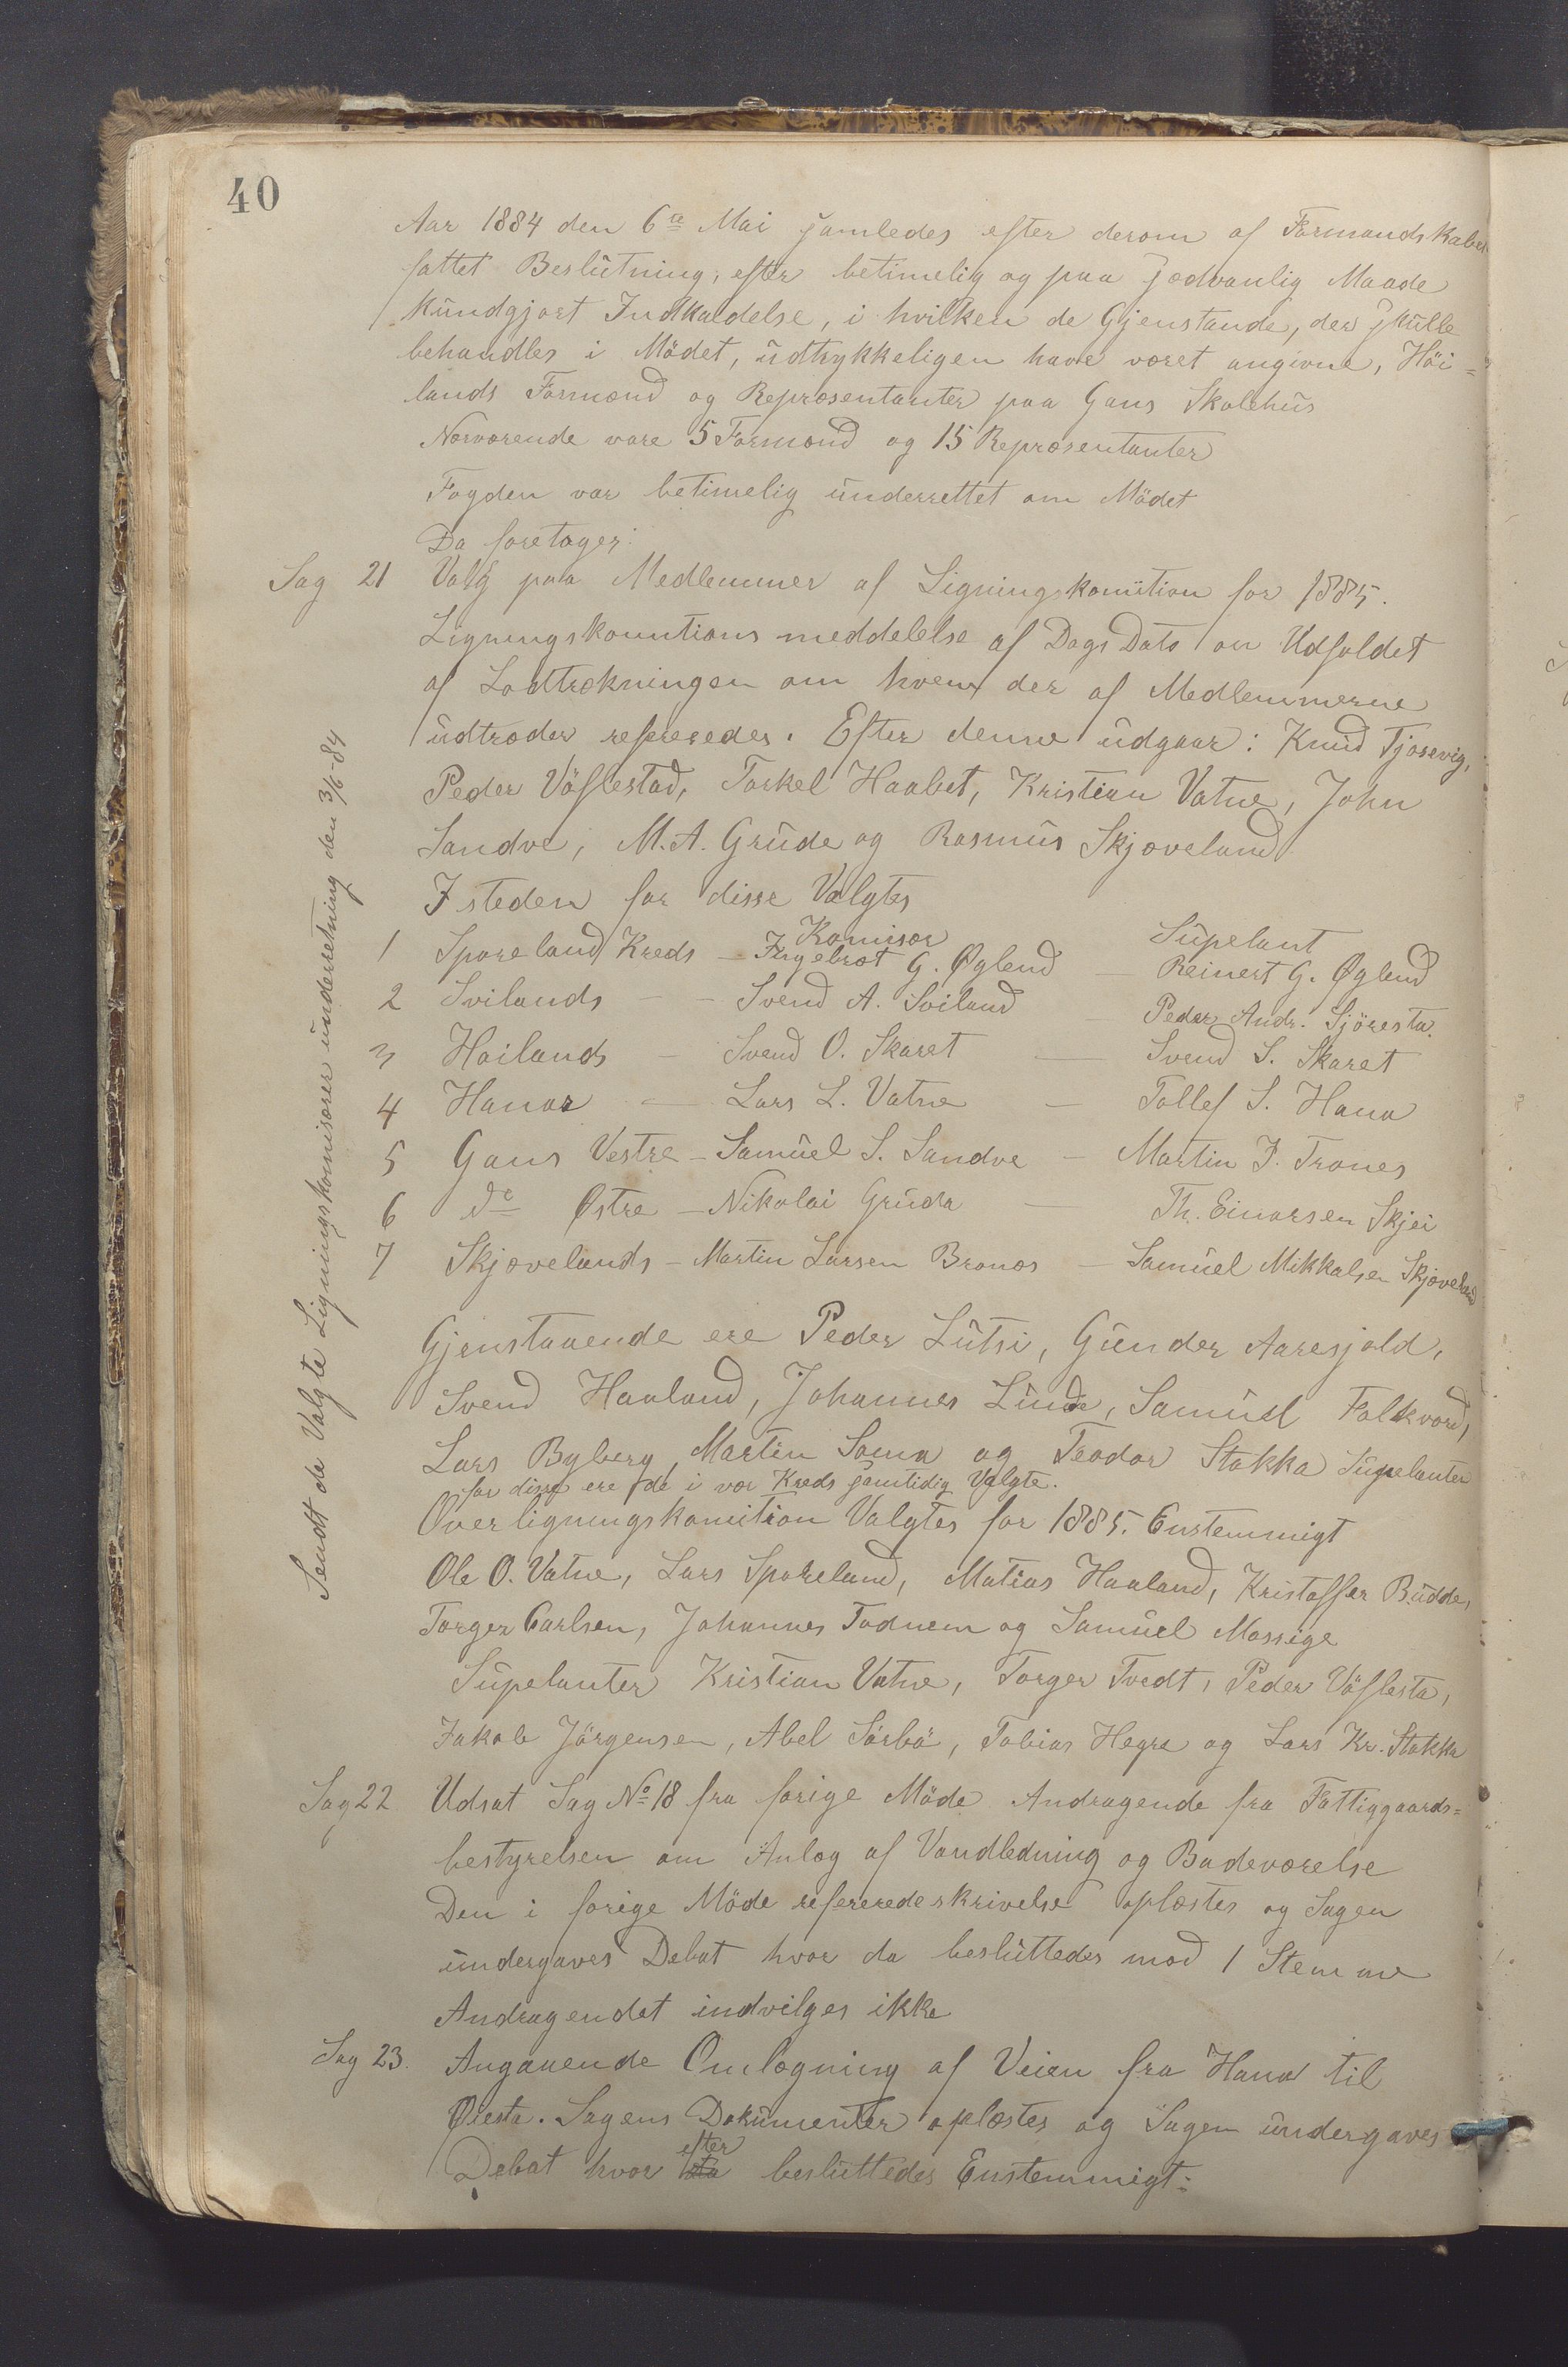 40
Aar 1884 den 6te Mai samledes efter derom af Formandskabet
fattet Beslutning, efter betimelig og paa sædvanlig Maade
kundgjort Indkaldelse, i hvilken de Gjenstande, der skulle
behandles i Mödet, udtrykkeligen have været angivne, Höi=
lands Formænd og Repræsentanter paa Gans Skolehus
Nærværende vare 5 Formænd og 15 Repræsentanter
Fogden var betimelig underrettet om Mödet
Da foretages:
Sag 21 Valg paa Medlemmer af Ligningskomition for 1885.
Ligningskomitions meddelelse af Dags Dato om Udfaldet
af Lodtrækningen om hvem der af Medlemmerne
udtræder refereredes. Efter denne udgaar: Knud Tjosevig,
Peder Vöflestad, Torkel Haabet, Kristian Vatne, John
Sandve, M. A. Grude og Rasmus Skjæveland
I steden for disse Valgtes
Komisær Supelant
1 Sporeland Kreds - Ingebrot G. Øglend - Reinert G. Øglend
2 Svilands - - Svend A. Sviland - Peder Andr. Sjöresta.
3 Hoilands - Svend O. Skaret - Svend S. Skaret
4 Hanas - Lars L. Vatne - Tollef S. Hana
5 Gans Vestre - Samuel S. Sandve - Martin J. Trones
6 do Østre - Nikolai Gruda - Th. Einarsen Skjei
7 Skjævelands - Martin Larsen Bronos - Samuel Mikkalsen Skjæveland
Gjenstaaende ere Peder Lutsi, Gunder Aaresjold,
Svend Haaland, Johannes Lunde, Samuel Folkvord,
Lars Byberg, Martin Soma og Teodor Stokka Supelanter
for disse ere de i vor Kreds samtidig Valgte.
Overligningskomition Valgtes for 1885. Enstemmigt
Ole O. Vatne, Lars Sporeland, Matias Haaland, Kristoffer Budde,
Torger Carlsen, Johannes Todnem og Samuel Mossige
Supelanter Kristian Vatne, Torger Tvedt, Peder Vöflesta,
Jakob Jörgensen, Abel Sörbö, Tobias Hegre og Lars Kr. Stokka
Sag 22 Udsat Sag No 18 fra forige Möde Andragende fra Fattiggaards=
bestyrelsen om Anlæg af Vandledning og Badeværelse
Den i forige Möde refererede skrivelse oplæstes og Sagen
undergaves Debat hvor da besluttedes mod 1 Stemme
Andragendet indvilges ikke
Sag 23. Angaaende Omlægning af Veien fra Hana til
Øiesta. Sagens Dokumenter oplæstes og Sagen undergaves
efter
Debat hvor da besluttedes Enstemmigt:
Sendt de Valgte Ligningskomisærer underretning den 3/6-84